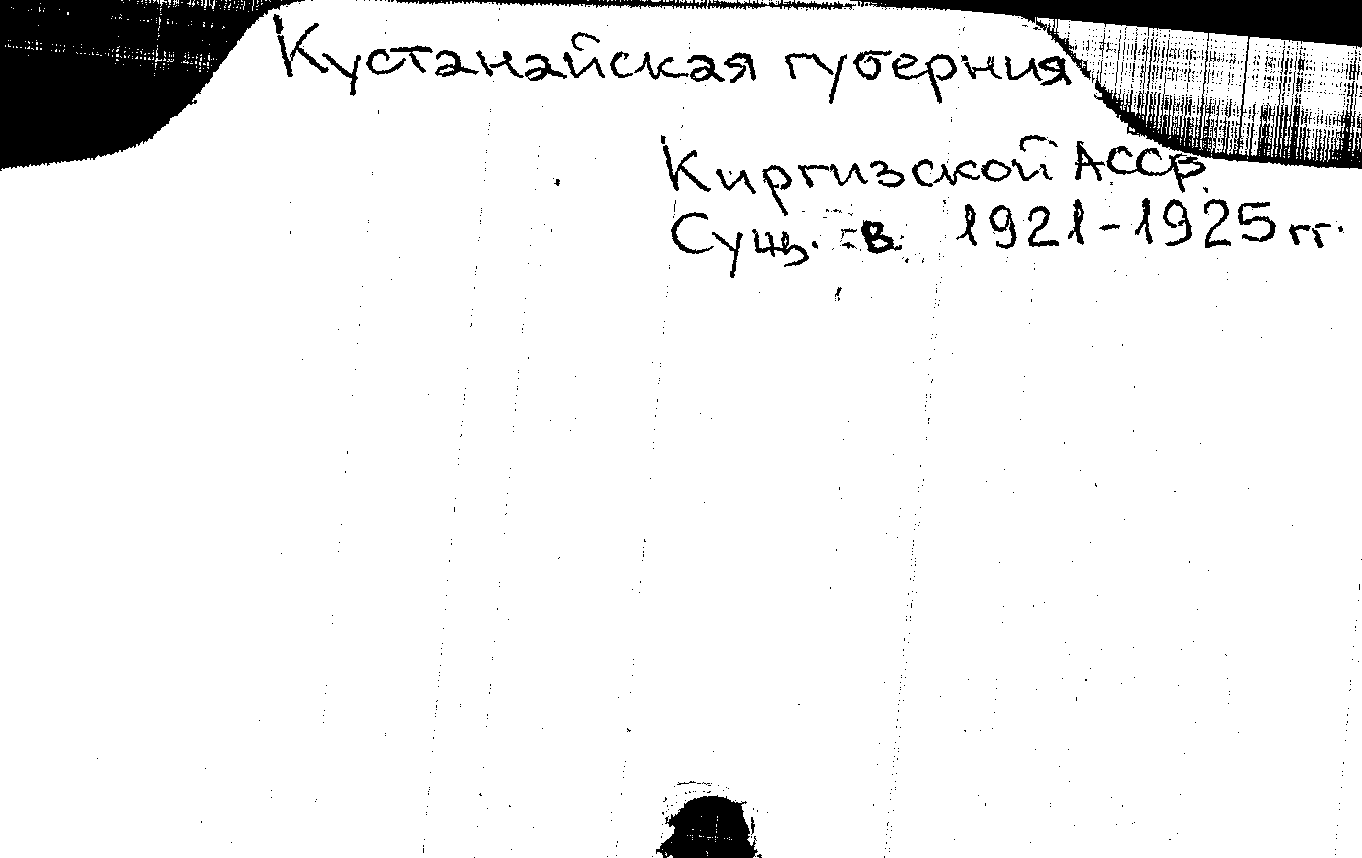 Кустанайская губерния
Киргизской АССР.
Сущ. в 1921-1925 гг.